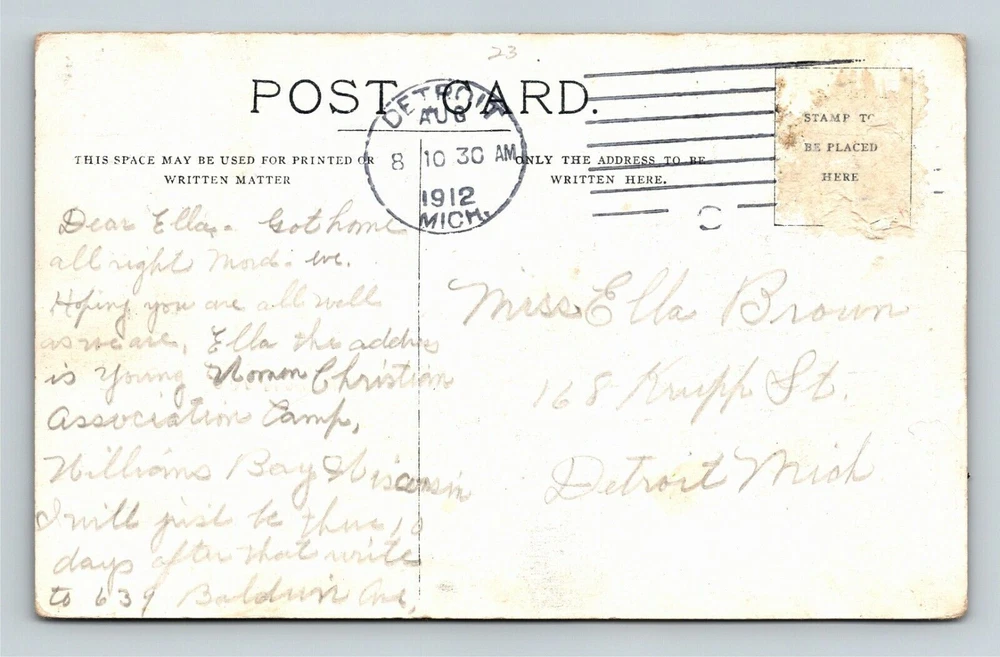 23
POST CARD.
DETROIT
AUG
8 10 30 AM
1912
MICH.
STAMP TO
BE PLACED
HERE
THIS SPACE MAY BE USED FOR PRINTED OR
WRITTEN MATTER
ONLY THE ADDRESS TO BE
WRITTEN HERE.
Dear Ella. Got home
all right Mond. eve.
Hoping you are all well
as we are, Ella the address
is Young Women Christian
Association Camp,
Williams Bay Wisconsin
I will just be there 10
days after that write
to 639 Baldwin Ave,
Miss Ella Brown
168 Krupp St.
Detroit Mich